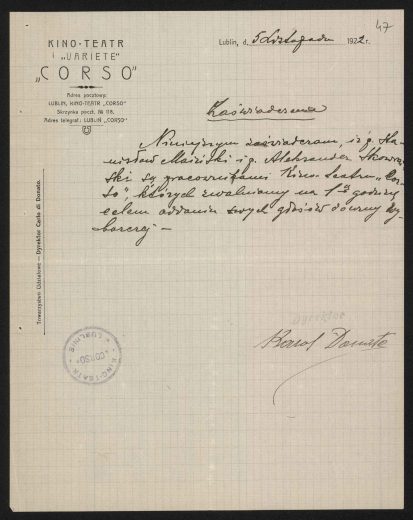 47
KINO-TEATR
i „VARIETE"
„CORSO"
Adres pocztowy:
LUBLIN, KINO-TEATR „CORSO"
Skrzynka poczt. № 118.
Adres telegraf.: LUBLIN „CORSO"
Lublin, d. 5 Listopada 1922 r.
Zaświadczenie
Niniejszym zaświadczam, iż p. Sta-
nisław i p. Aleksander
ski są pracownikami Kino-Teatru „Cor-
so", których zwalniamy na 1-ą godzinę
celem oddania swych głosów do urny wy-
borczej —
Towarzystwo Udziałowe — Dyrektor Carlo di Donato.
Dyrektor
Karol Donato
KINO-TEATR „CORSO" W LUBLINIE